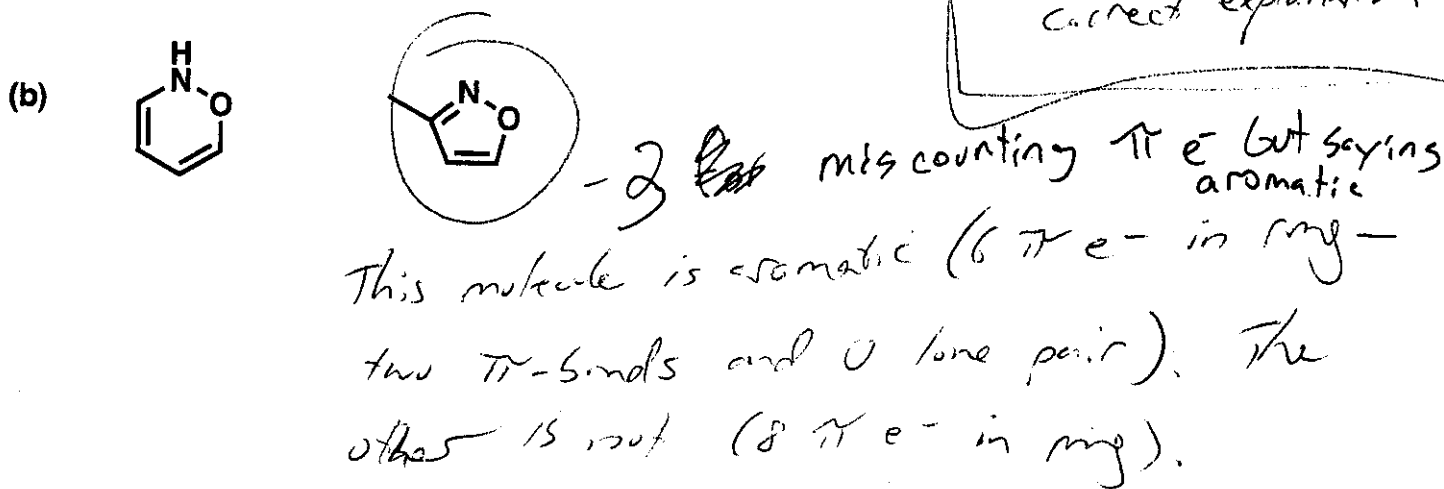 correct
(b)
H
N
O
N
O
-2 miscounting π e⁻ but saying
aromatic
This molecule is aromatic (6 π e- in ring -
two π-bonds and O lone pair). The
other is not (8 π e- in ring).